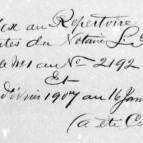 ex au Répertoire
tes du Notaire L.
No 1 au No 2192
Et
février 1907 au 16 Jan
(a été Co